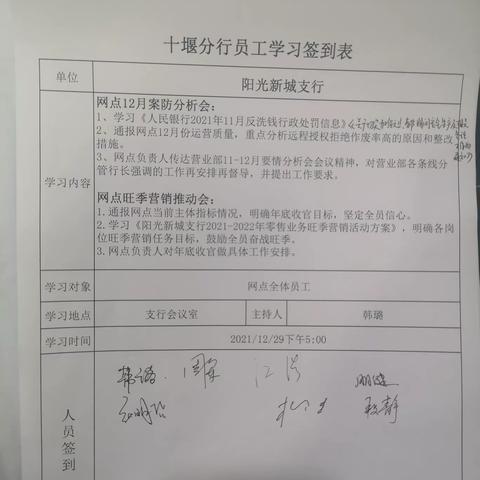 十堰分行员工学习签到表
单位
阳光新城支行
学习内容
网点12月案防分析会:
1、学习《人民银行2021年11月反洗钱行政处罚信息》
2、通报网点12月份运营质量，重点分析远程授权拒绝作废率高的原因和整改
措施。
3、网点负责人传达营业部11-12月要情分析会会议精神，对营业部各条线分
管行长强调的工作再安排再督导，并提出工作要求。
网点旺季营销推动会:
1.通报网点当前主体指标情况，明确年底收官目标，坚定全员信心。
2.学习《阳光新城支行2021-2022年零售业务旺季营销活动方案》，明确各岗
位旺季营销任务目标，鼓励全员奋战旺季。
3.网点负责人对年底收官做具体工作安排。
学习对象
网点全体员工
学习地点
支行会议室
主持人
韩璐
学习时间
2021/12/29下午5:00
人员签到
韩璐